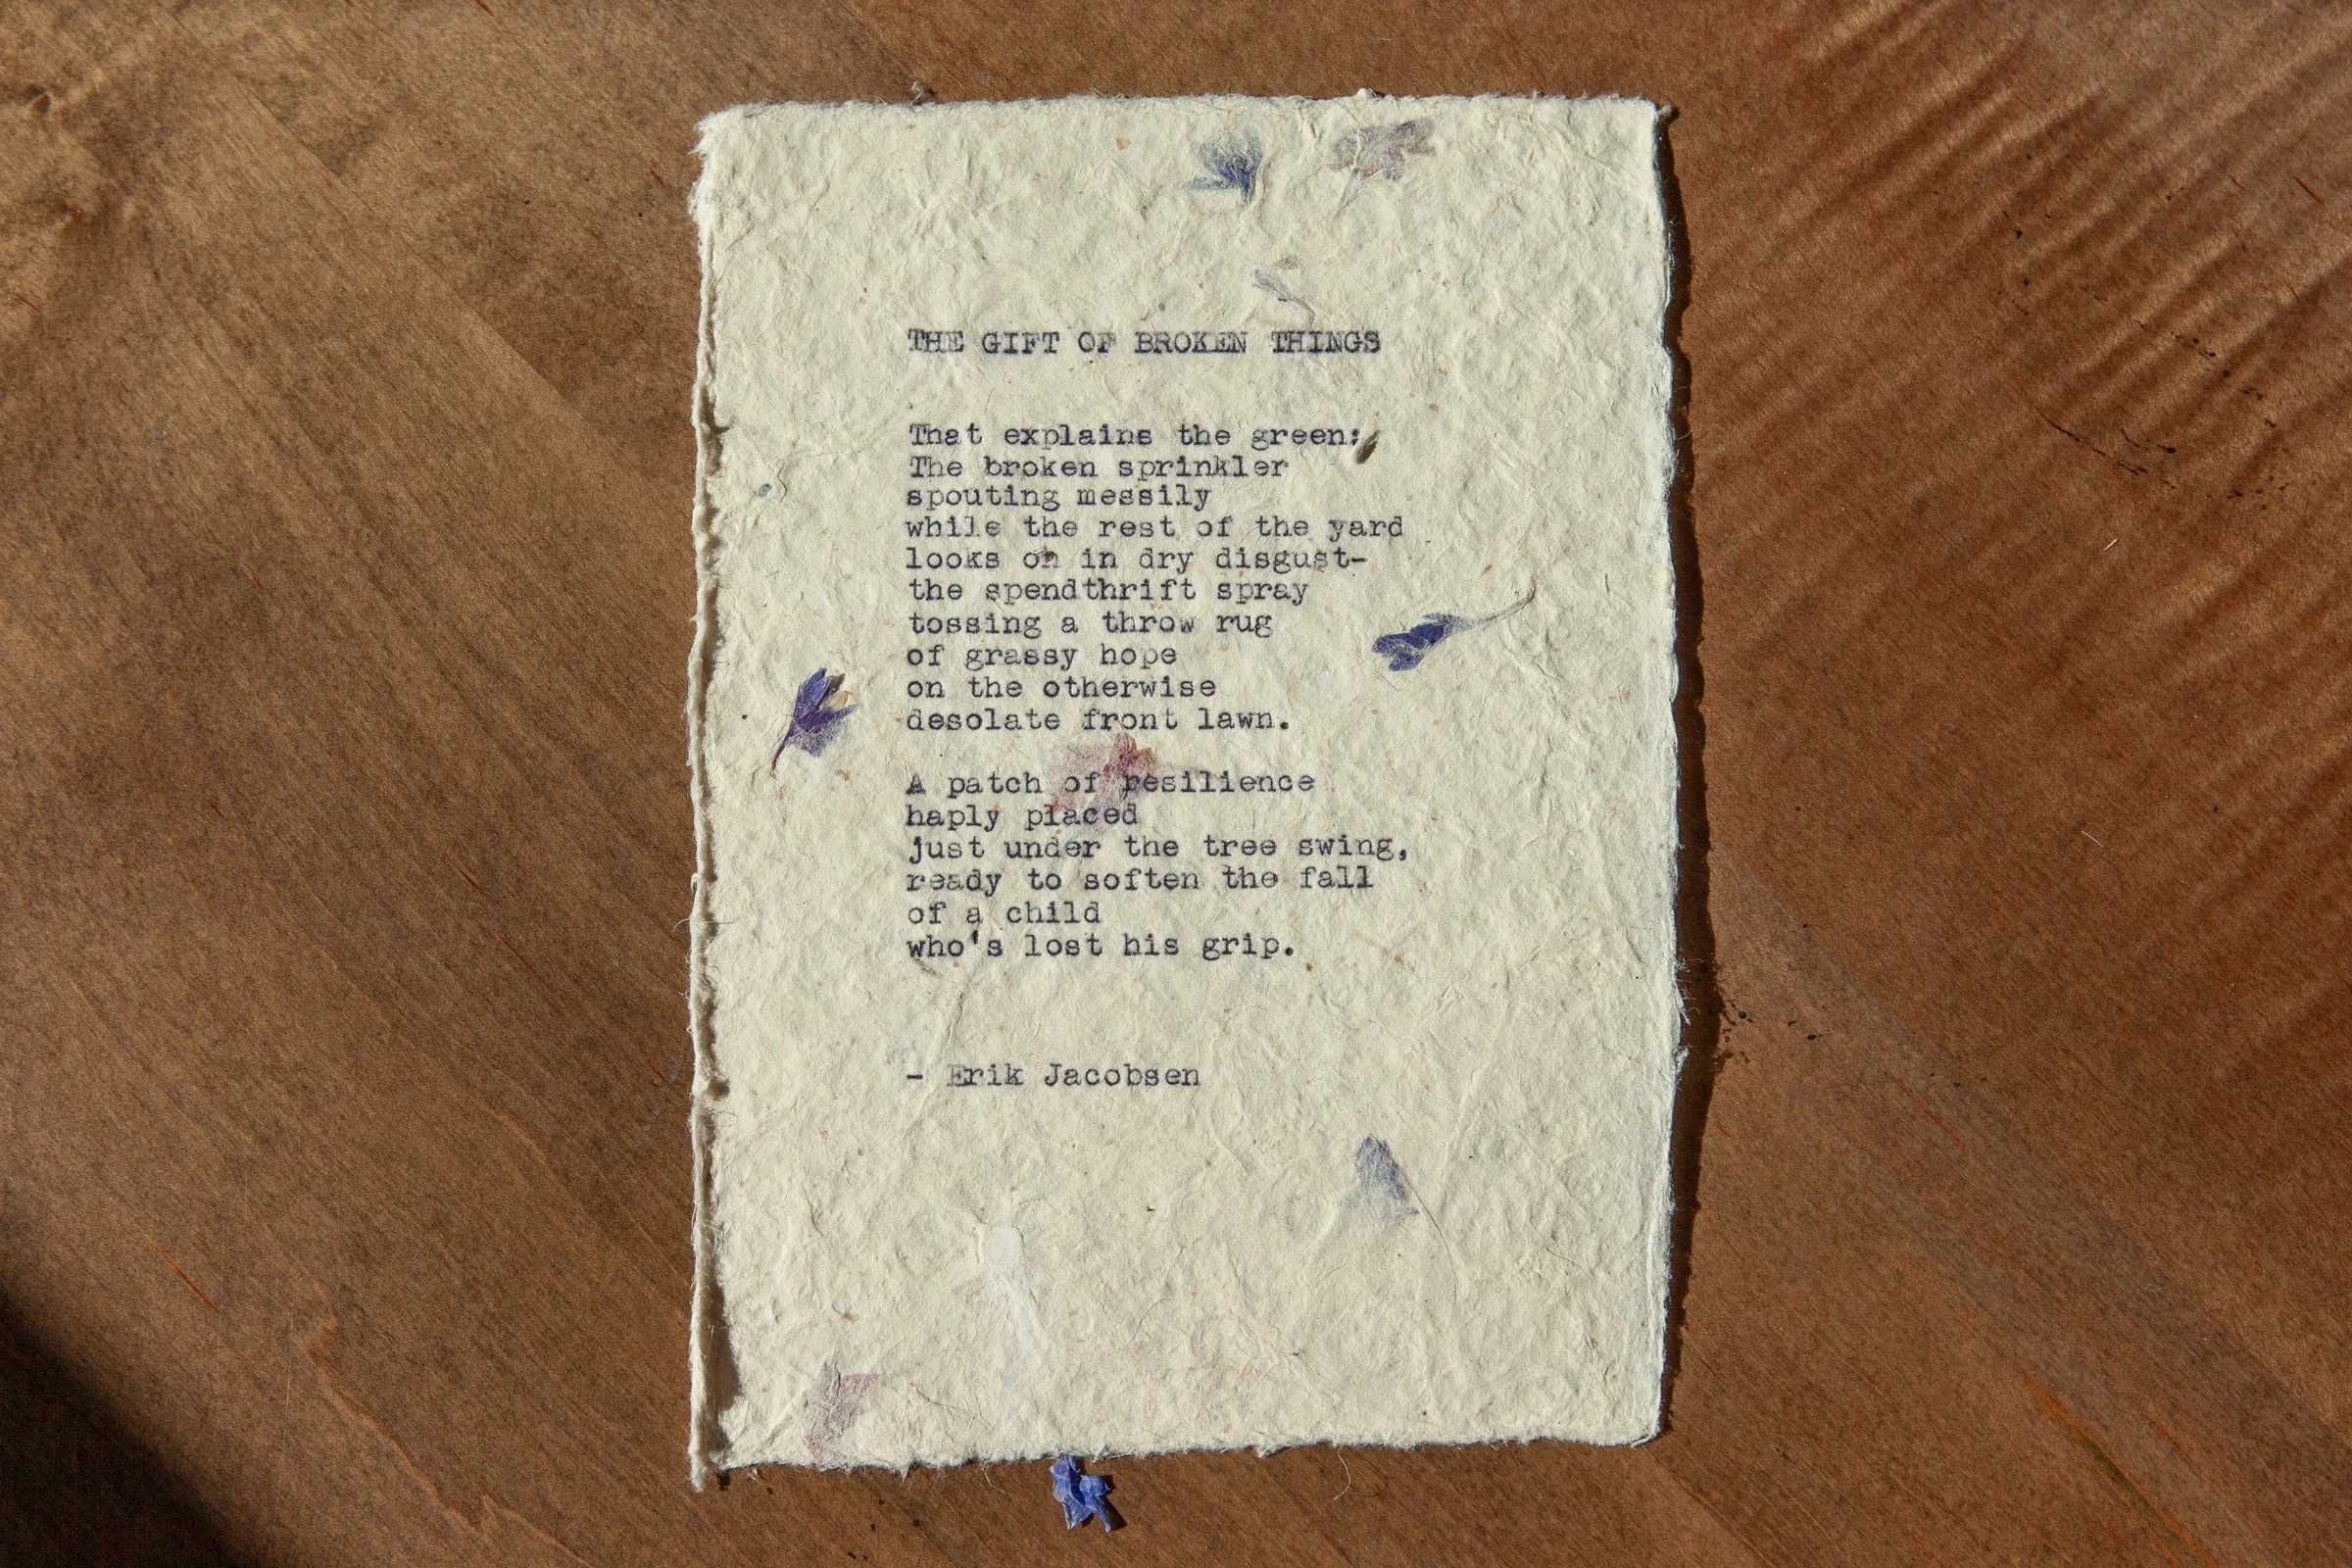 THE GIFT OF BROKEN THINGS
That explains the green:
The broken sprinkler
spouting messily
while the rest of the yard
looks on in dry disgust-
the spendthrift spray
tossing a throw rug
of grassy hope
on the otherwise
desolate front lawn.
A patch of resilience
haply placed
just under the tree swing,
ready to soften the fall
of a child
who's lost his grip.
- Erik Jacobsen